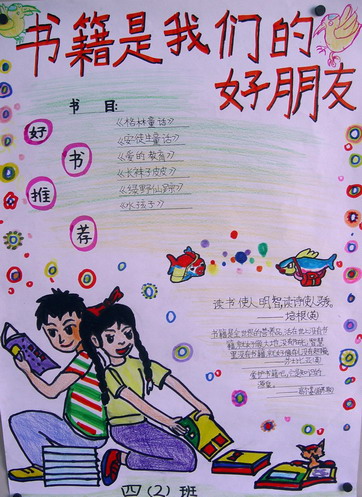 书籍是我们的
好朋友
好书推荐
书目:
《格林童话》
《安徒生童话》
《爱的教育》
《长袜子皮皮》
《绿野仙踪》
《水孩子》
读书使人明智,读诗使人灵秀。
——培根(英)
书籍是全世界的营养品,生活里没有书
籍,就好像没有阳光;智慧
里没有书籍,就好像鸟儿没有翅膀
——莎士比亚(英)
爱护书籍吧,它是知识的
源泉。
——高尔基
四(2)班